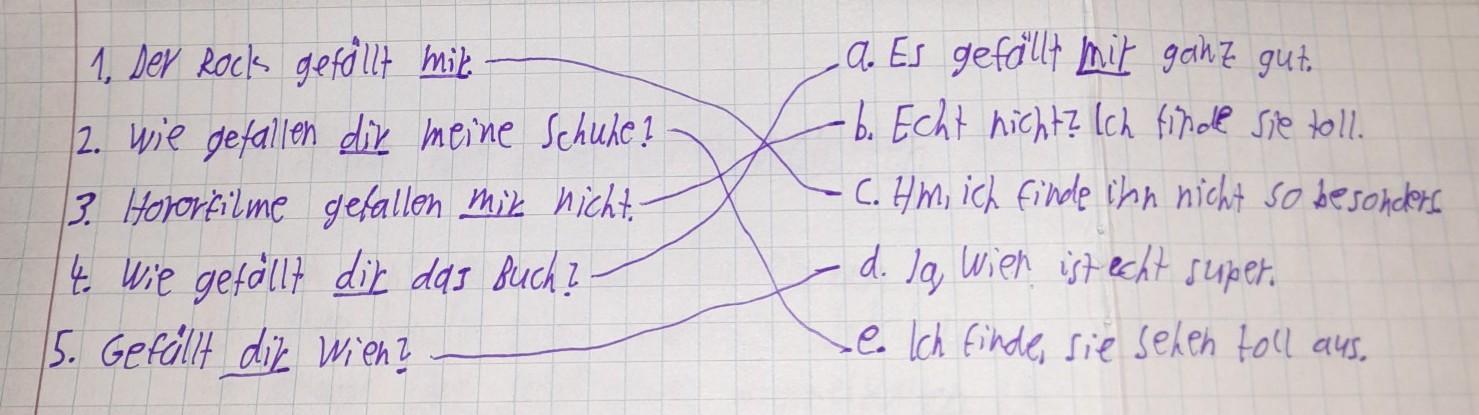 1. Der Rock gefällt mir
2. Wie gefallen dir meine Schuhe?
3. Hororfilme gefallen mir nicht.
4. Wie gefällt dir das Buch?
5. Gefällt dir Wien?
a. Es gefällt mir ganz gut.
b. Echt nicht? Ich finde sie toll.
c. Hm, ich finde ihn nicht so besonders
d. Ja, Wien ist echt super.
e. Ich finde, sie sehen toll aus.